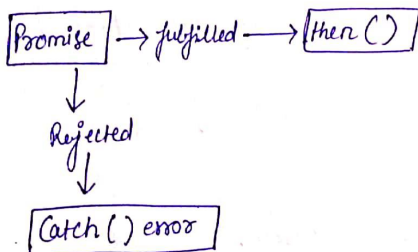 Promise → fulfilled → then ()
Rejected
Catch () error